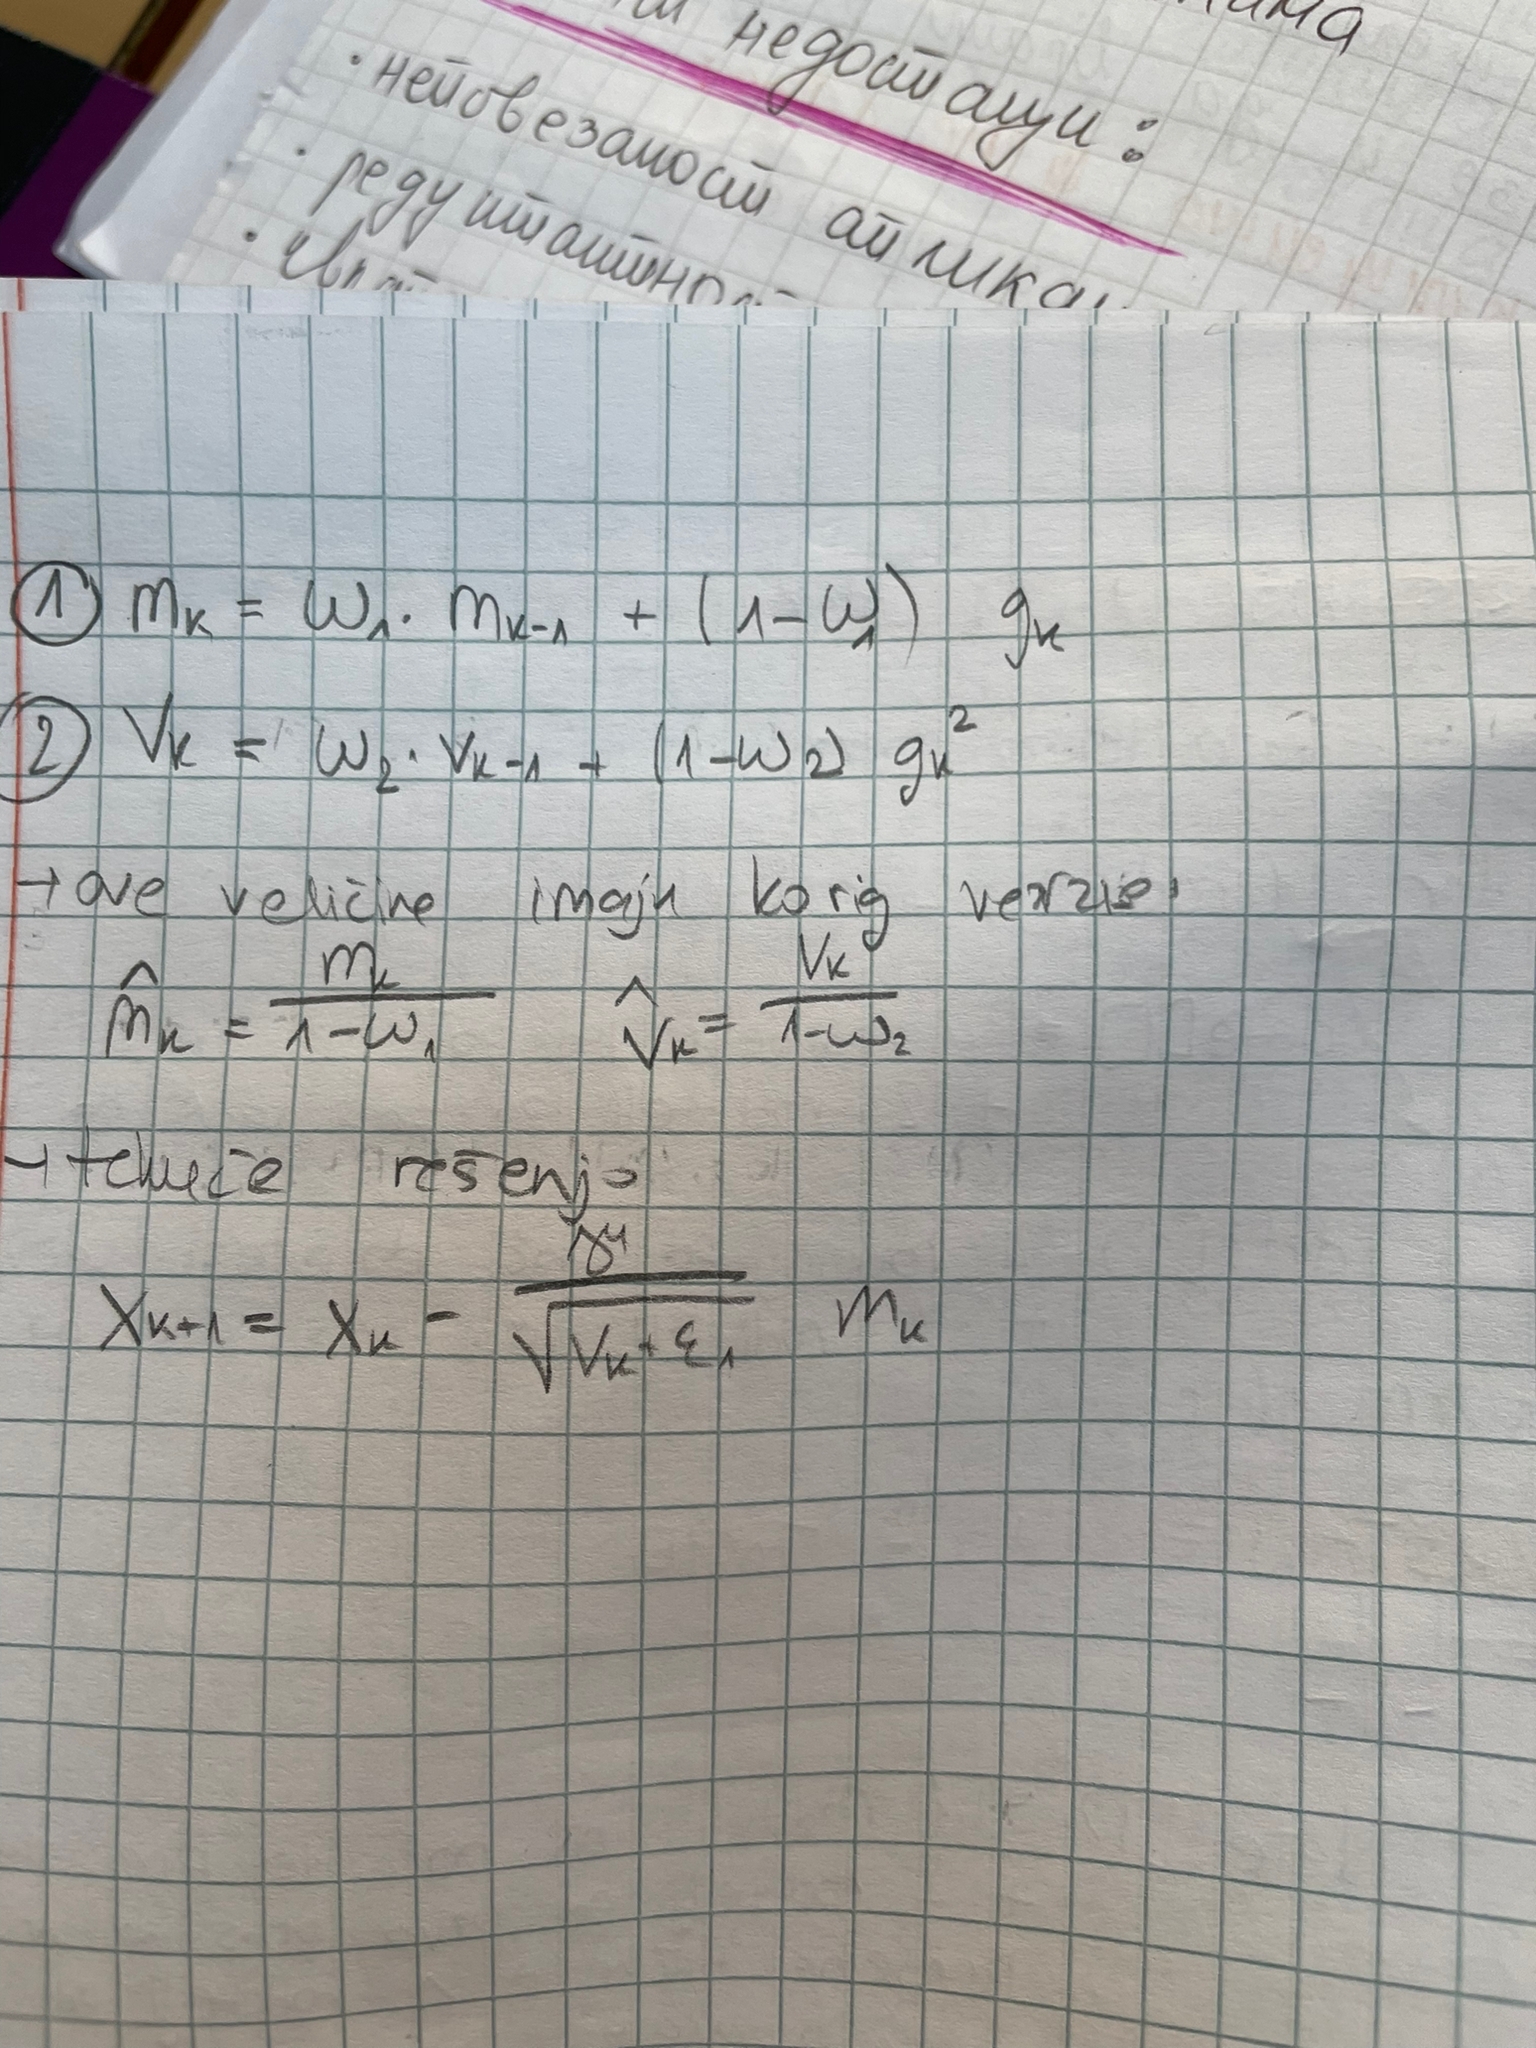 недостаци:
· неповезаност апликац
· редунтантност
① mk = ω1 · mk-1 + (1-ω1) gk
② Vk = ω2 · Vk-1 + (1-ω2) gk²
→ ove veličine imaju korig verzije:
m̂k = mk / (1-ω1)   V̂k = Vk / (1-ω2)
→ tekuće rešenje
Xk+1 = Xk - γ / √(Vk + ε1) mk